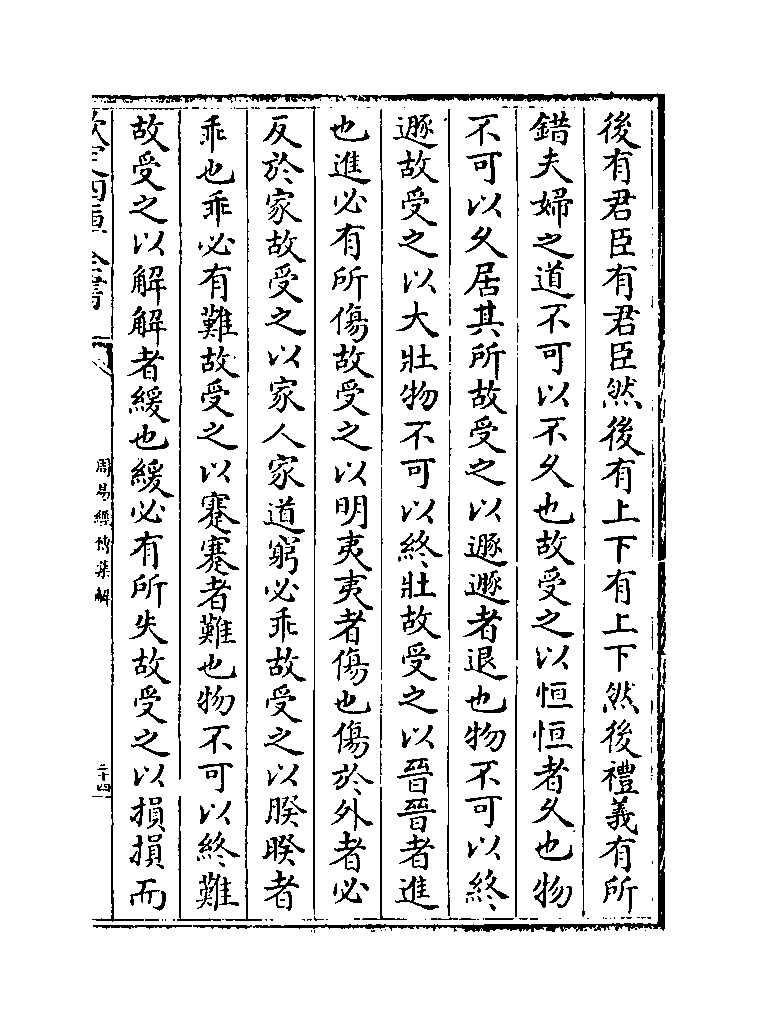 後有君臣有君臣然後有上下有上下然後禮義有所
錯夫婦之道不可以不久也故受之以恒恒者久也物
不可以久居其所故受之以遯遯者退也物不可以終
遯故受之以大壯物不可以終壯故受之以晉晉者進
也進必有所傷故受之以明夷夷者傷也傷於外者必
反於家故受之以家人家道窮必乖故受之以睽睽者
乖也乖必有難故受之以蹇蹇者難也物不可以終難
故受之以解解者緩也緩必有所失故受之以損損而
欽定四庫全書
周易經傳集解
二十四